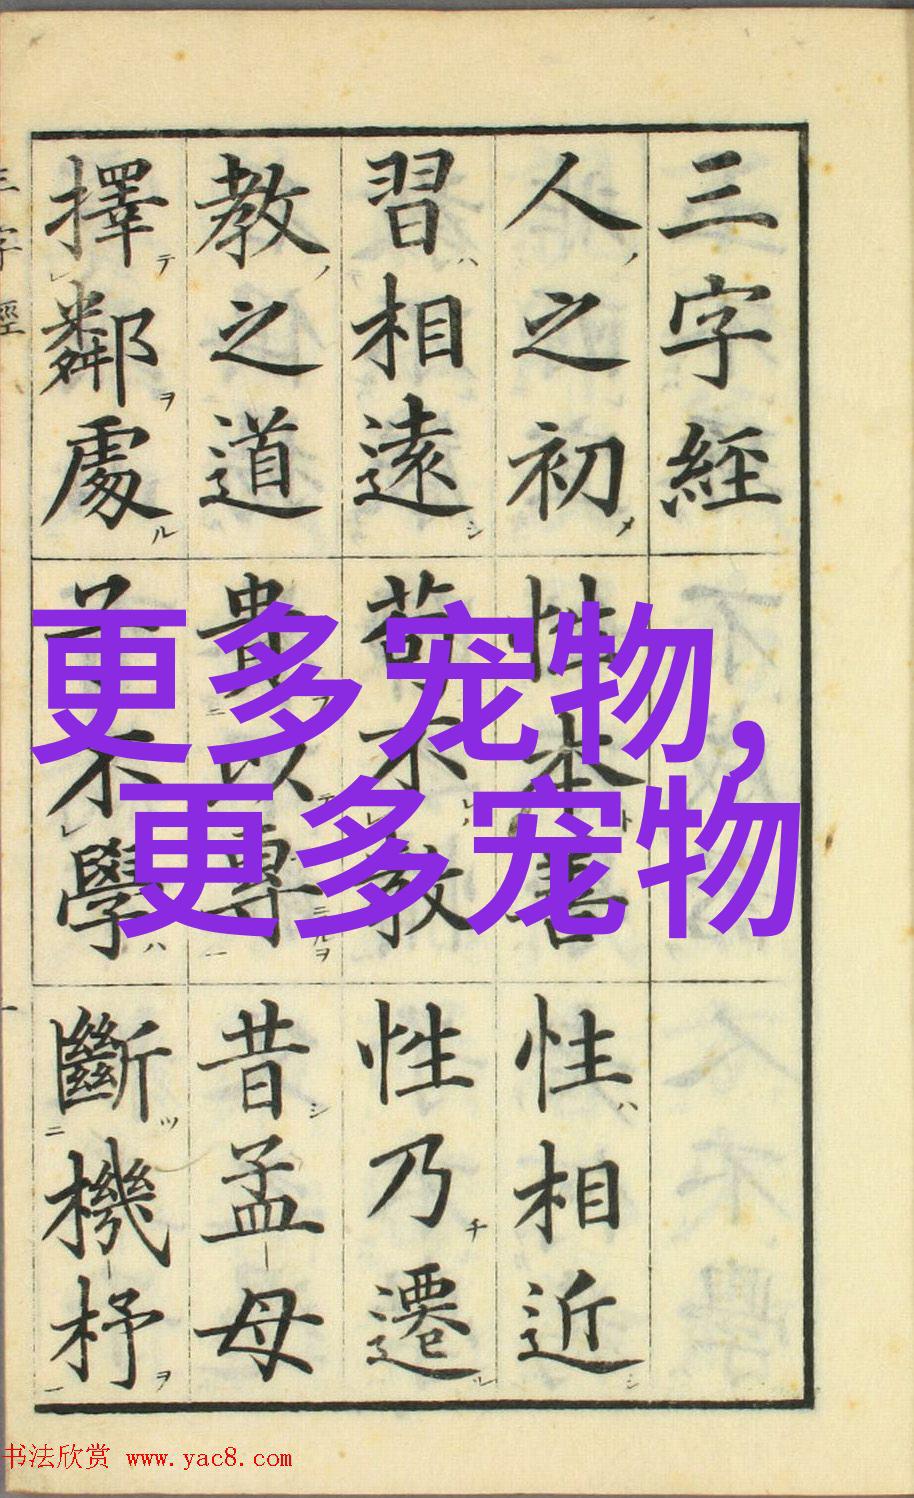 三字経
人之初 性本善 性相近
習相遠 苟不教 性乃遷
教之道 貴以專 昔孟母
擇鄰處 子不學 斷機杼
三字經 一
更多宠物,
更多宠物
书法欣赏 www.yac8.com